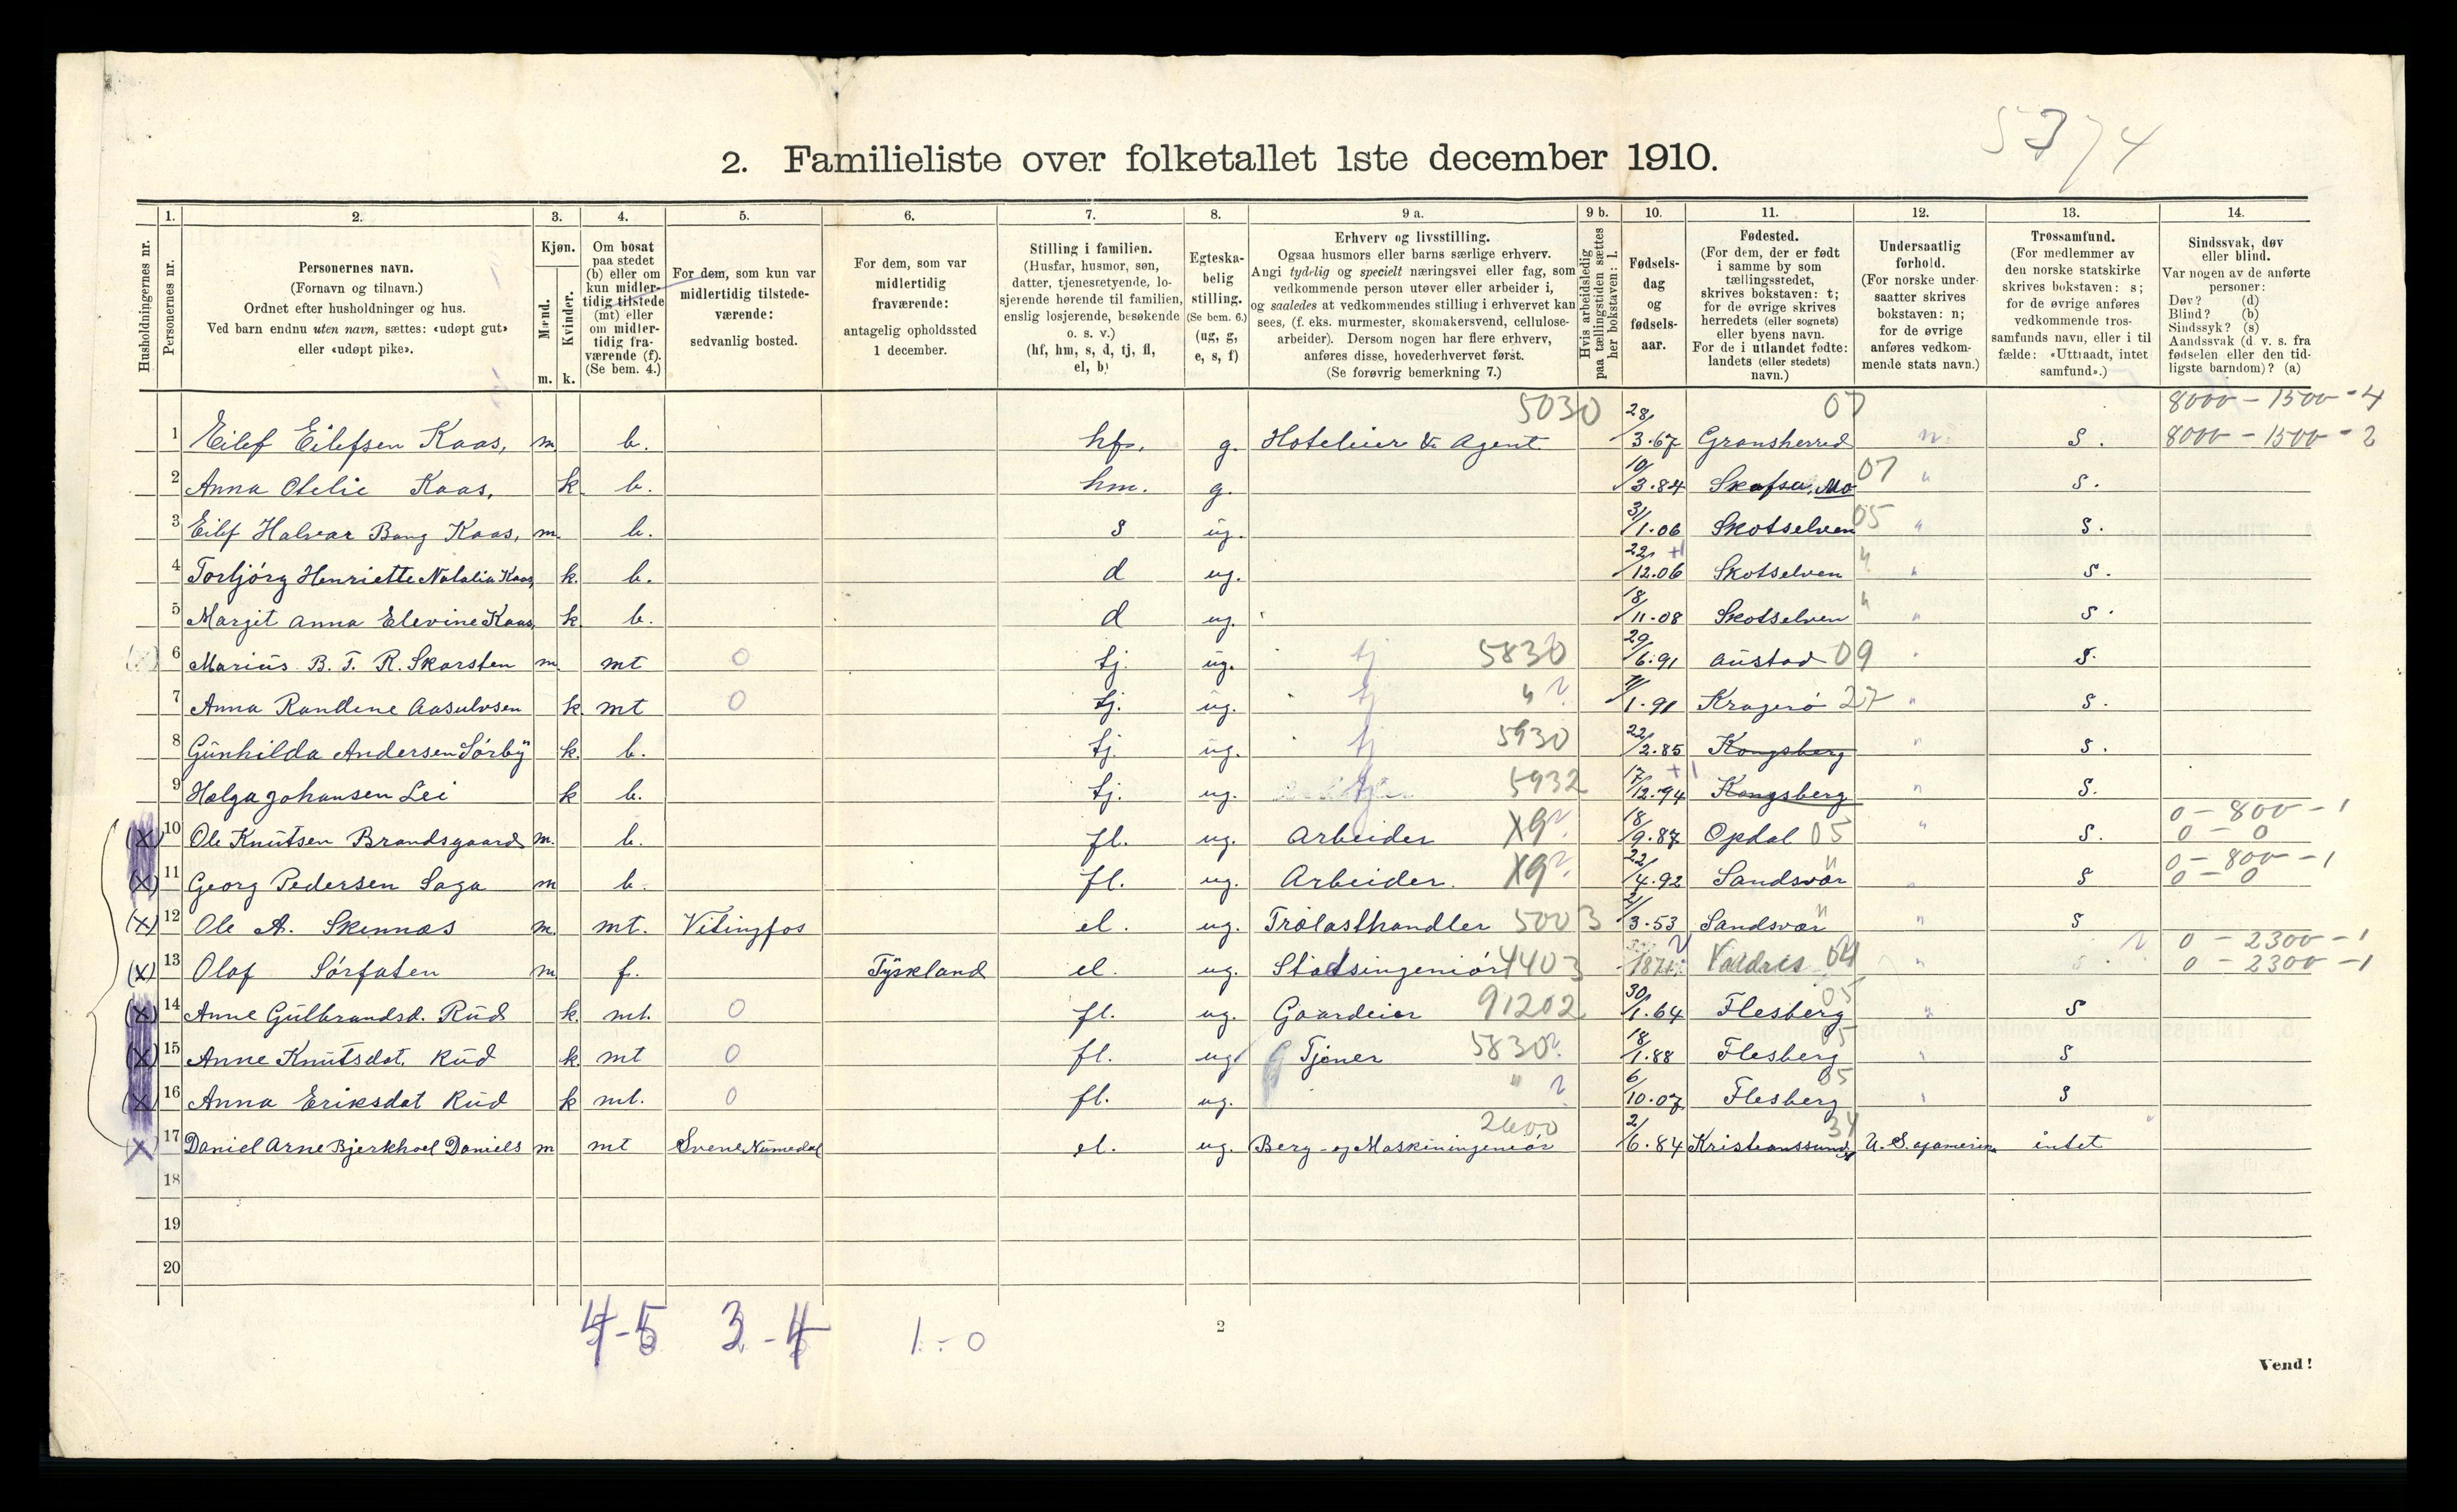 5374
2. Familieliste over folketallet 1ste december 1910.
Husholdningernes nr.
1. Personernes nr.
2. Personernes navn. (Fornavn og tilnavn.) Ordnet efter husholdninger og hus. Ved barn endnu uten navn, sættes: «udøpt gut» eller «udøpt pike».
3. Kjøn. Mænd. m. Kvinder. k.
4. Om bosat paa stedet (b) eller om kun midlertidig tilstede (mt) eller om midlertidig fraværende (f). (Se bem. 4.)
5. For dem, som kun var midlertidig tilstedeværende: sedvanlig bosted.
6. For dem, som var midlertidig fraværende: antagelig opholdssted 1 december.
7. Stilling i familien. (Husfar, husmor, søn, datter, tjenesretyende, losjerende hørende til familien, enslig losjerende, besøkende o. s. v.) (hf, hm, s, d, tj, fl, el, b)
8. Egteskabelig stilling. (Se bem. 6.) (ug, g, e, s, f)
9 a. Erhverv og livsstilling. Ogsaa husmors eller barns særlige erhverv. Angi tydelig og specielt næringsvei eller fag, som vedkommende person utøver eller arbeider i, og saaledes at vedkommendes stilling i erhvervet kan sees, (f. eks. murmester, skomakersvend, cellulosearbeider). Dersom nogen har flere erhverv, anføres disse, hovederhvervet først. (Se forøvrig bemerkning 7.)
9 b. Hvis arbeidsledig paa tællingstiden sættes her bokstaven: l.
10. Fødselsdag og fødselsaar.
11. Fødested. (For dem, der er født i samme by som tællingsstedet, skrives bokstaven: t; for de øvrige skrives herredets (eller sognets) eller byens navn. For de i utlandet fødte: landets (eller stedets) navn.)
12. Undersaatlig forhold. (For norske undersaatter skrives bokstaven: n; for de øvrige anføres vedkommende stats navn.)
13. Trossamfund. (For medlemmer av den norske statskirke skrives bokstaven: s; for de øvrige anføres vedkommende trossamfunds navn, eller i tilfælde: «Uttraadt, intet samfund».)
14. Sindssvak, døv eller blind. Var nogen av de anførte personer: Døv? (d) Blind? (b) Sindssyk? (s) Aandssvak (d. v. s. fra fødselen eller den tidligste barndom)? (a)
5030 07 8000 - 1500 - 4
1 Eilef Eilefsen Kaas, m. b. hf. g. Hoteleier & Agent 28/3.67 Gransherred n. s. 8000 - 1500 - 2
2 Anna Otelie Kaas, k. b. hm. g. 10/3.84 Skafsa, Mo 07 " s.
3 Eilif Halvar Bang Kaas, m. b. s ug. 31/1.06 Skotselven 05 " s.
4 Torbjörg Henriette Natalia Kaas, k. b. d ug. 22/12.06 +1 Skotselven " " s.
5 Margit Anna Elevine Kaas, k. b. d ug. 18/11.08 Skotselven " " s.
6 Marius B. T. R. Skarsten m. mt 0 tj. ug. tj 5830 29/6.91 Austad 09 " s.
7 Anna Randene Aasulvsen k. mt 0 tj. ug. tj " ? 11/1.91 Kragerö 27 " s.
8 Gunhilda Andersen Sörby k. b. tj. ug. tj 5930 22/2.85 Kongsberg " s.
9 Helga Johansen Lei k b. tj. ug. tj 5932 17/12.94 +1 Kongsberg " s.
0 - 800 - 1
(X) 10 Ole Knutsen Brandsgaard m. b. fl. ug. Arbeider X9? 18/9.87 Opdal 05 " s. 0 - 0
0 - 800 - 1
(X) 11 Georg Pedersen Saga m b. fl. ug. Arbeider. X9? 22/4.92 Sandsvær " " s 0 - 0
(X) 12 Ole A. Skennæs m. mt. Vitingfos el. ug. Trælasthandler 5003 2/3.53 Sandsvær " " s
0 - 2300 - 1
(X) 13 Olaf Sörfaten m f. Tyskland el. ug. Stadsingeniör 4403 1871 Valdres 04 " s. 0 - 2300 - 1
(X) 14 Anne Gulbrandsd. Rud k. mt. 0 fl. ug. Gaardeier 91202 30/1.64 Flesberg 05 " s
(X) 15 Anne Knutsdat. Rud k. mt 0 fl. ug. Tjener 5830? 18/1.88 Flesberg 05 " s
(X) 16 Anna Eriksdat Rud k mt. 0 fl. ug. " ? 6/10.07 Flesberg 05 " s
(X) 17 Daniel Arne Bjerkhoel Daniels m mt Svene Numedal el. ug. Berg- og Maskiningeniör 2600 2/6.84 Kristianssund 34 U. S. af amerika intet
18
19
20
4-5 3-4 1-0
2
Vend!